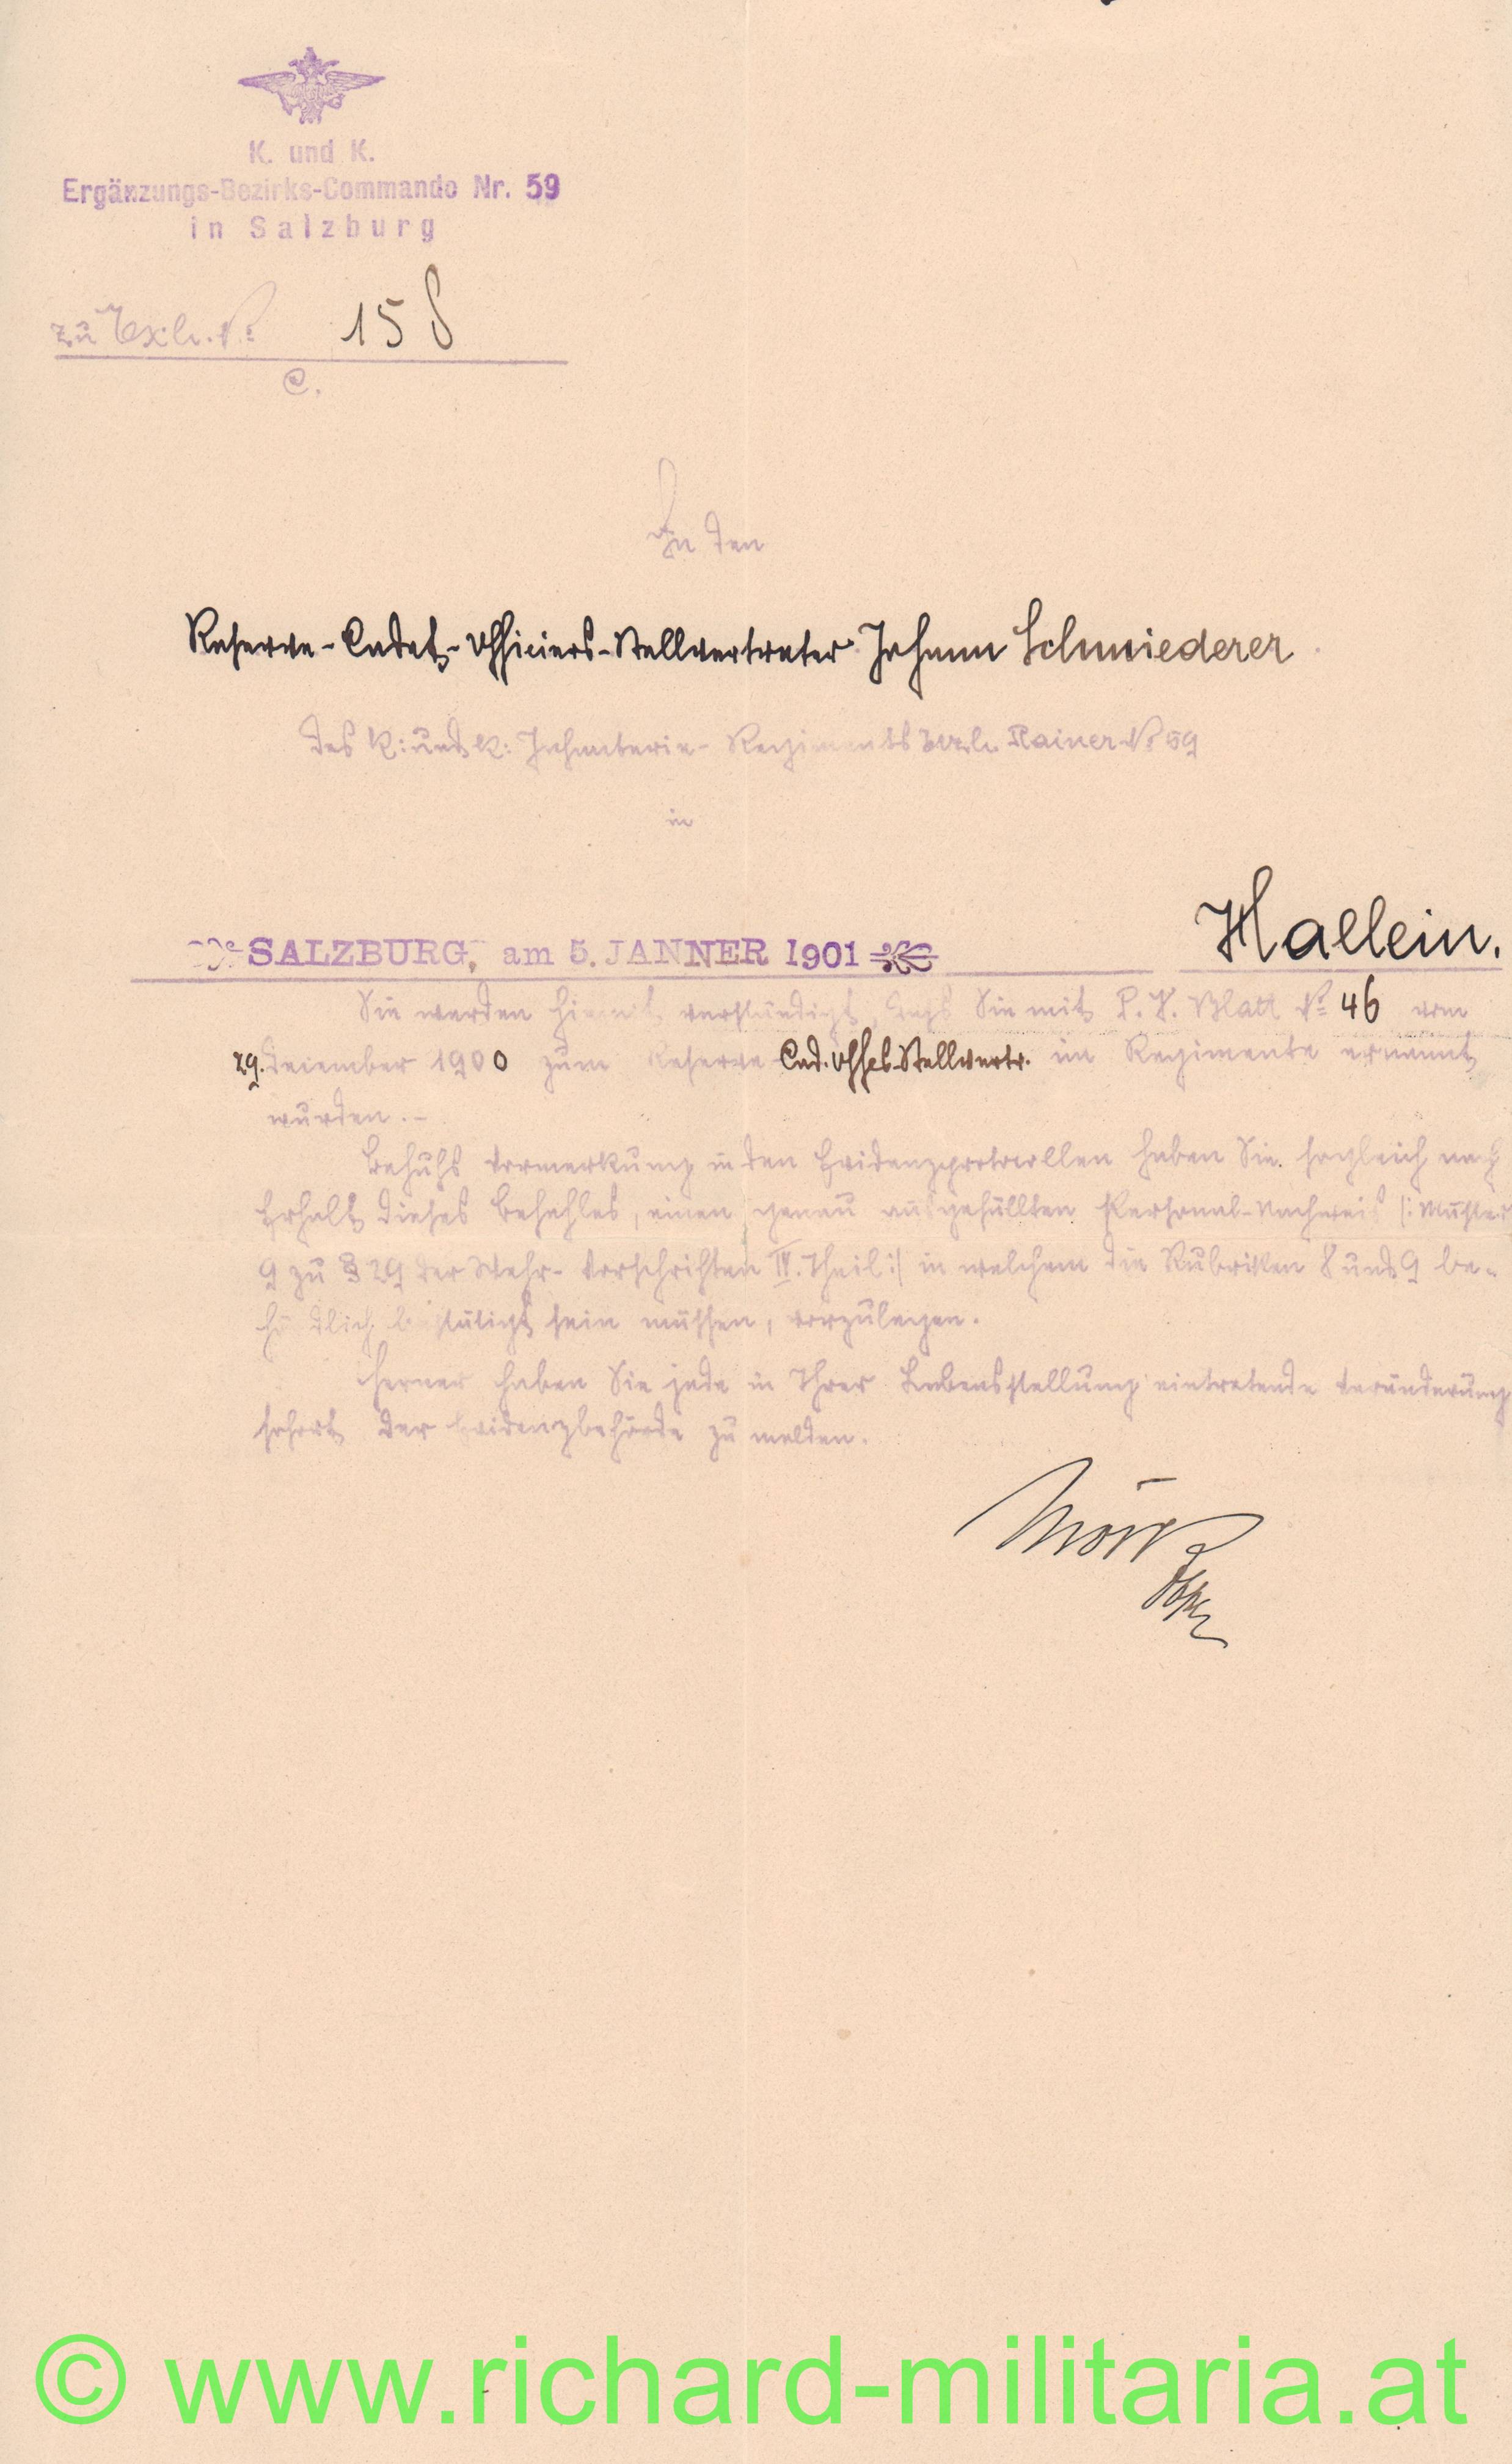 K. und K.
Ergänzungs-Bezirks-Commando Nr. 59
in Salzburg
zu Exh. No 158
C.
An den
Reserve-Cadet-Officiers-Stellvertreter Johann Schmiederer
des k: und k: Infanterie-Regiments Erzh. Rainer No 59
in
Hallein.
SALZBURG, am 5. JANNER 1901
Sie werden hiemit verständigt, dass Sie mit P. V. Blatt No 46 vom
29. December 1900 zum Reserve Cad. Offcs. Stellvertr. im Regimente ernannt
wurden.-
Behufs Vormerkung in den Evidenzprotocollen haben Sie sogleich nach
Erhalt dieses Befehles, einen genau ausgefüllten Personal-Nachweis /: Muster
9 zu § 29 der Wehr-Vorschriften IV. Theil :/ in welchem die Rubriken 8 und 9 be-
hördlich bestätigt sein müssen, vorzulegen.
Ferner haben Sie jede in Ihrer Lebensstellung eintretende Veränderung
sofort der Evidenzbehörde zu melden.
© www.richard-militaria.at